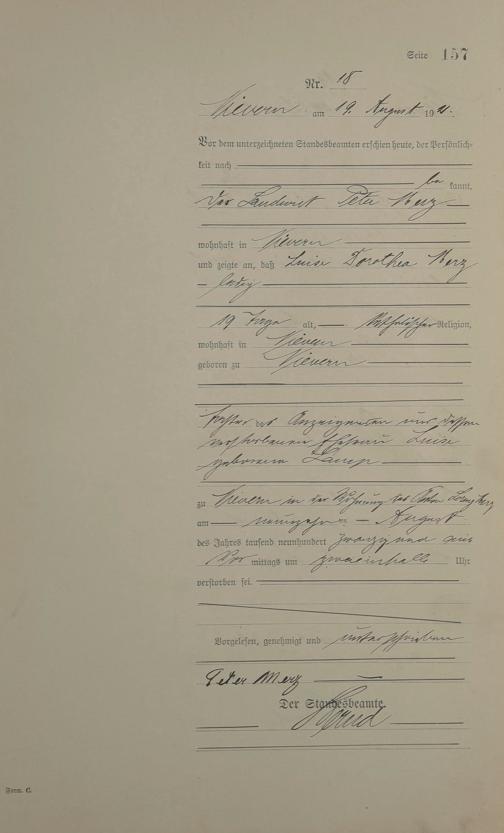 Seite 157
Nr. 18
Nievern am 19. August 1921.
Vor dem unterzeichneten Standesbeamten erschien heute, der Persönlich-
keit nach
be kannt,
der Landwirt Peter Merz
wohnhaft in Nievern
und zeigte an, daß Luise Dorothea Merz
ledig
19 Tage alt, katholischer Religion,
wohnhaft in Nievern
geboren zu Nievern
Tochter des Anzeigenden und dessen
verstorbenen Ehefrau Luise
geborene
zu Nievern in der Wohnung des
am neunzehn August
des Jahres tausend neunhundert zwanzig und eins
Vor mittags um zweieinhalb Uhr
verstorben sei.
Vorgelesen, genehmigt und unterschrieben
Peter Merz
Der Standesbeamte.
Form. C.